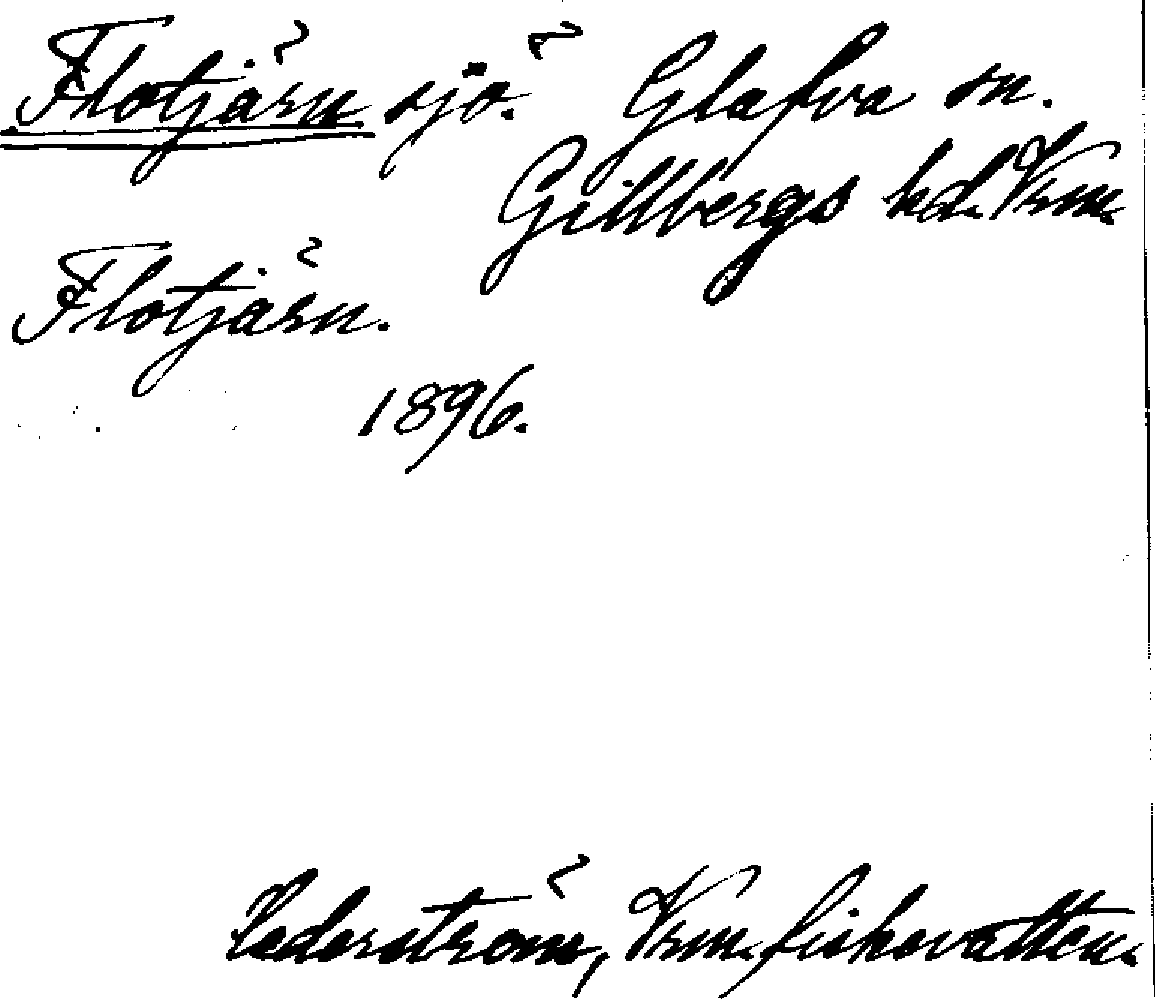 Flotjärn sjö. Glafva sn.
Gillbergs hd. Vrm.
Flotjärn.
1896.
Cederström, Vrm. fiskevatten.